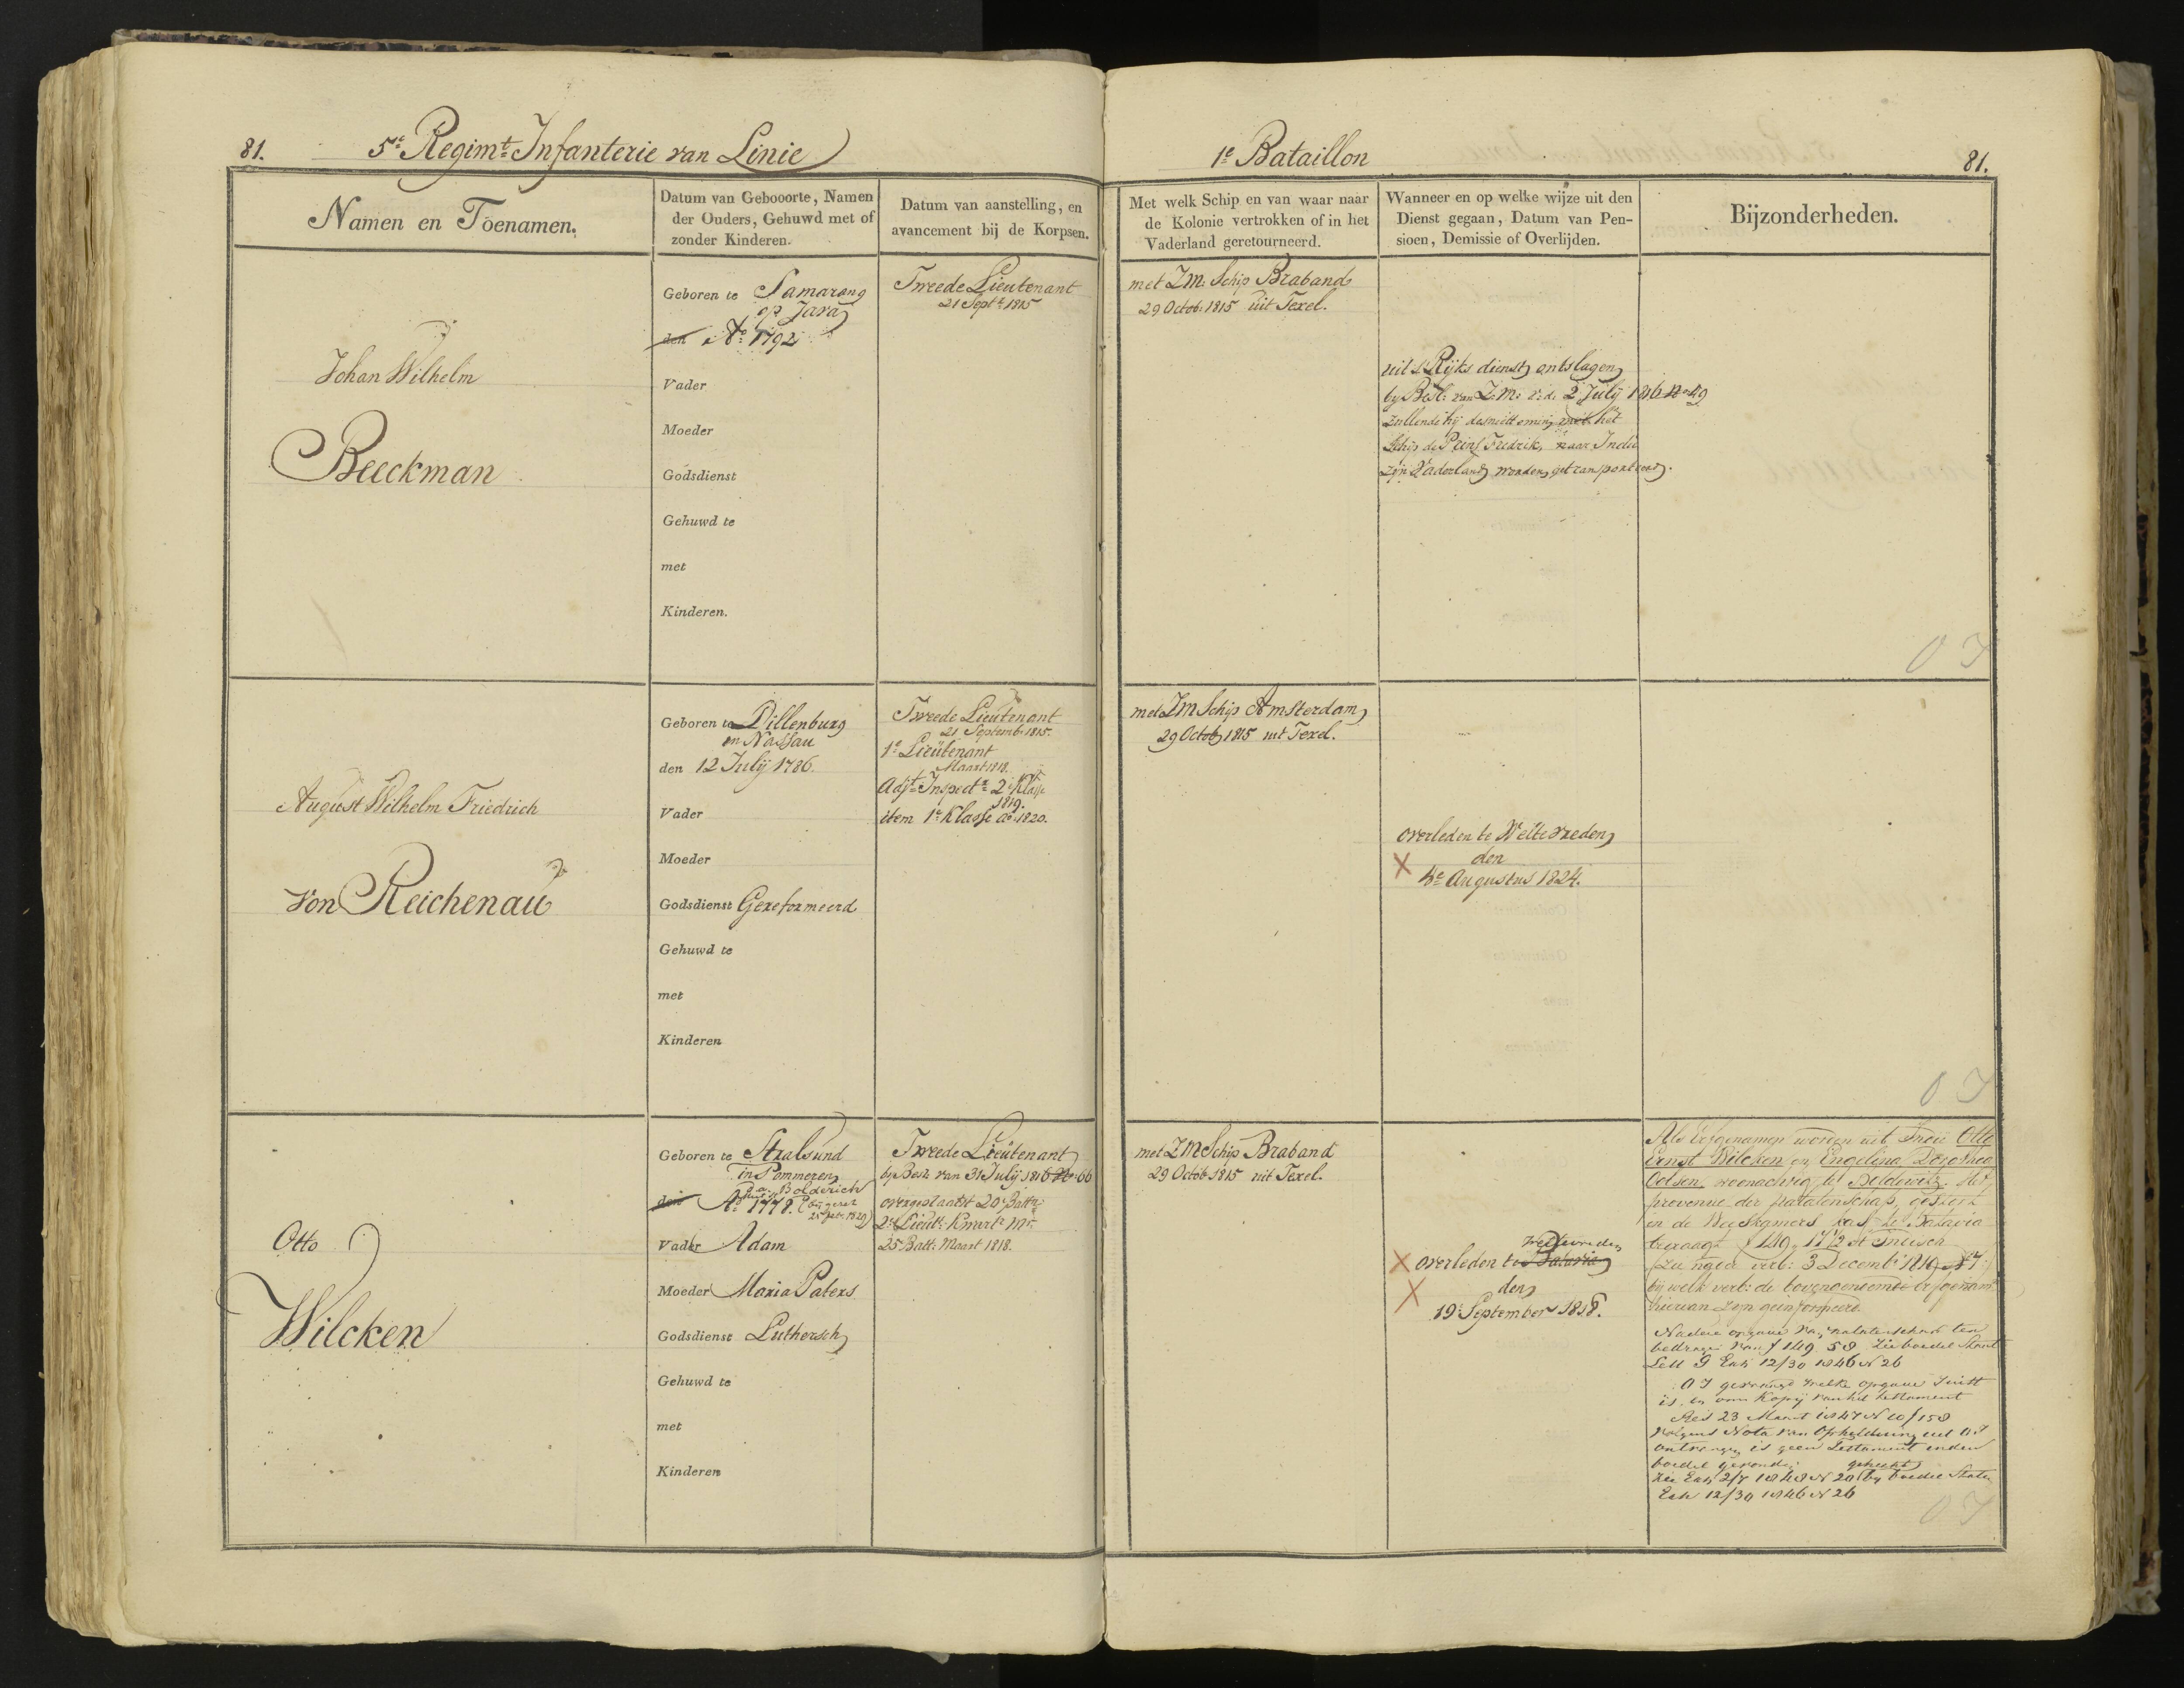 81.
5e Regimt Infanterie van Linie
1e Bataillon
81.
Namen en Toenamen.
Datum van Gebooorte, Namen
der Ouders, Gehuwd met of
zonder Kinderen.
Datum van aanstelling, en
avancement bij de Korpsen.
Met welk Schip en van waar naar
de Kolonie vertrokken of in het
Vaderland geretourneerd.
Wanneer en op welke wijze uit den
Dienst gegaan, Datum van Pen-
sioen, Demissie of Overlijden.
Bijzonderheden.
Johan Wilhelm
Beeckman
Geboren te Samarang
op Java
den Ao 1792
Vader
Moeder
Godsdienst
Gehuwd te
met
Kinderen.
Tweede Lieutenant
21 Sept: 1815
met ZM. Schip Braband
29 Octob: 1815 uit Texel.
uit 's Rijks dienst ontslagen
by Besl: van Z.M. v.d. 2 July 1816 No 49
zullende hij met het
Schip de Prins Fredrik, naar Indie
zijn Vaderland worden getransporteerd.
O I
August Wilhelm Friedrich
Von Reichenau
Geboren te Dillenburg
in Nassau
den 12 Julij 1786.
Vader
Moeder
Godsdienst Gereformeerd
Gehuwd te
met
Kinderen
Tweede Lieutenant
21 Septemb: 1815.
1e Lieutenant
Maart 1818.
Adjt Inspectr 2e Klasse
1819.
item 1e Klasse ao 1820.
met ZM Schip Amsterdam
29 Octob 1815 uit Texel.
overleden te Weltevreden
den
4e Augustus 1824.
O I
Otto
Wilcken
Geboren te Stralsund
in Pommeren
a. Bolderich
den Ao 1778.
Vader Adam
Moeder Maria Paters
Godsdienst Luthersch
Gehuwd te
met
Kinderen
Tweede Lieutenant
by Besl: van 31 July 1816 No 66
overgeplaatst 20e Battn
2e Lieut: Kwartr Mr
25 Batt: Maart 1818.
met ZM Schip Braband
29 Octob 1815 uit Texel.
Weltevreden
overleden te Batavia
den
19 September 1818.
Als Erfgenamen worden uit Indie Otto
Ernst Wilcken en Engelina Dorothea
Oelsen woonachtig te
provenue der nalatenschap, gestort
in de Weeskamers kas te Batavia
bedraagt f 149, 17 1/2 st Indisch
verb: 3 Decemb: 1819
bij welk verb: de bovengenoemde erfgenam:
hiervan zyn geinformeerd.
Nadere opgave van nalatenschap ten
bedrage van f 149 58 Zie boedel Staat
Lett 9 Exh 12/30 1846 N 26
O I gevraagd welke opgave juist
is, en om Kopij van het testament
Res 23 Maart 1847 N 10/158
volgens Nota van Opheldering uit O.I
ontvangen is geen Testament in den
boedel gevonden gehecht
Zie Exh 2/7 1848 N 20 by boedel Staten
Exh 12/30 1846 N 26
O I